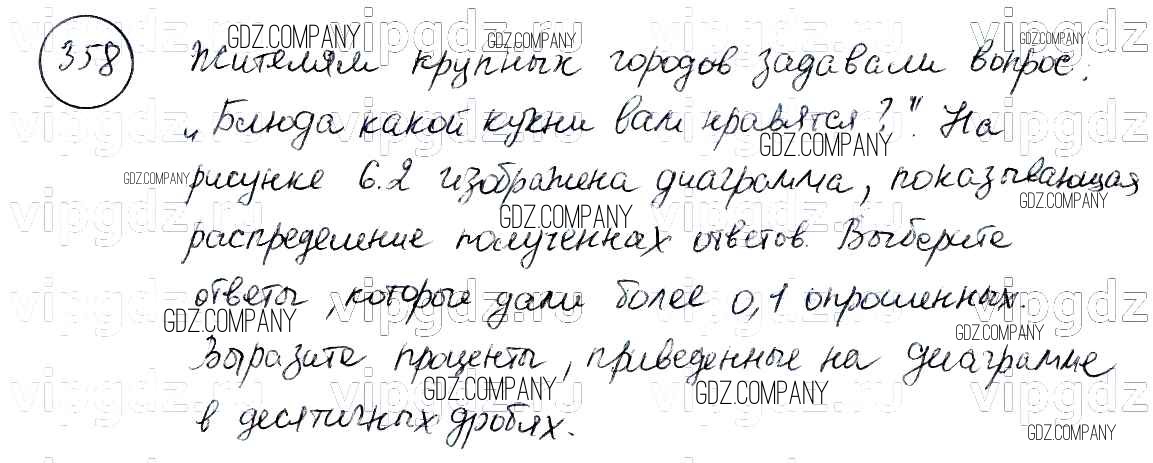 358 Жителям крупных городов задавали вопрос:
„Блюда какой кухни вам нравятся?". На
рисунке 6.2 изображена диаграмма, показывающая
распределение полученных ответов. Выберите
ответы, которые дали более 0,1 опрошенных.
Выразите проценты, приведенные на диаграмме
в десятичных дробях.
GDZ.COMPANY
vipgdz.ru